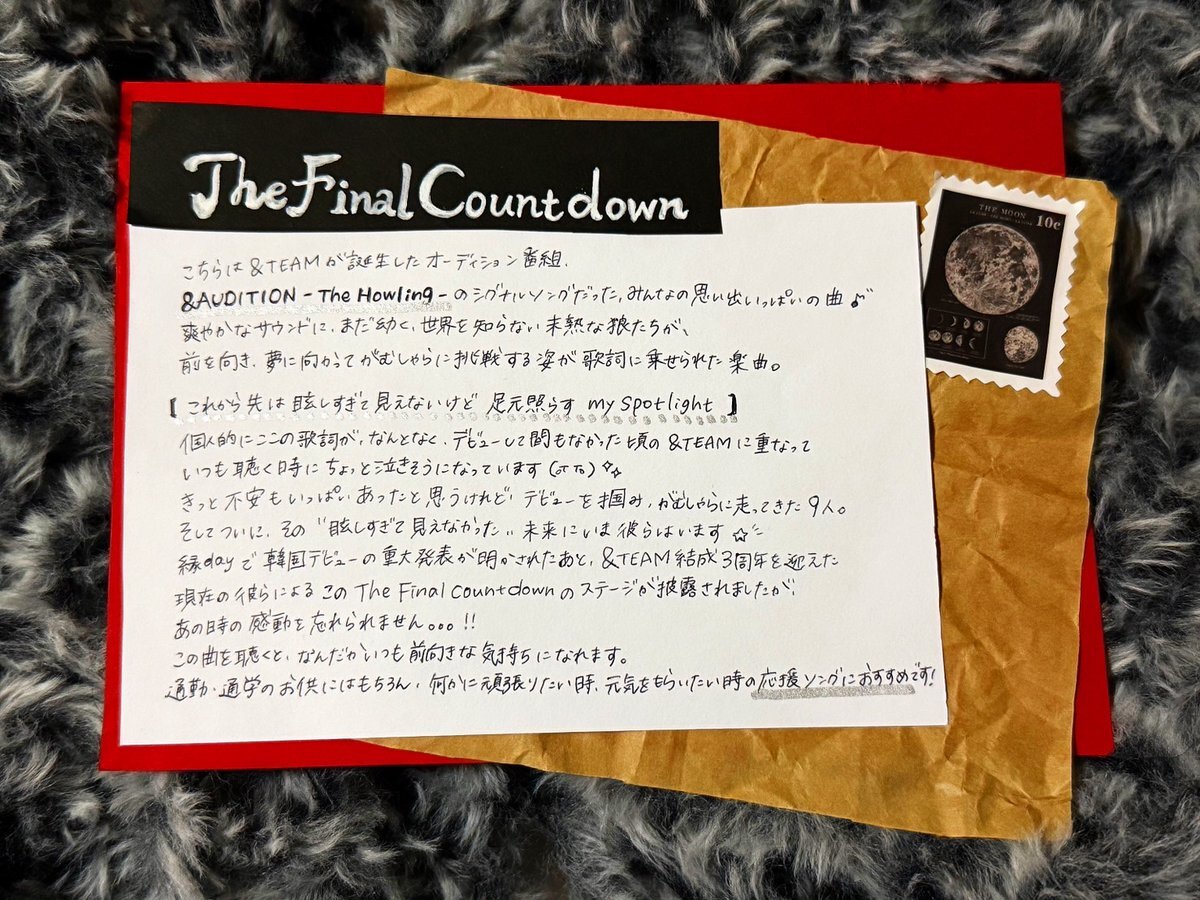 The Final Countdown
こちらは &TEAMが誕生したオーディション番組、
&AUDITION - The Howling - のシグナルソングだった、みんなの思い出いっぱいの曲♪
爽やかなサウンドに、まだ幼く、世界を知らない未熟な狼たちが、
前を向き、夢に向かってがむしゃらに挑戦する姿が歌詞に乗せられた楽曲。
【これから先は眩しすぎて見えないけど 足元照らす my spotlight】
個人的にここの歌詞が、なんとなく、デビューして間もなかった頃の&TEAMに重なって
いつも聴く時にちょっと泣きそうになっています
きっと不安もいっぱいあったと思うけれど、デビューを掴み、がむしゃらに走ってきた9人。
そしてついに、その"眩しすぎて見えなかった"未来にいま彼らはいます☆
縁dayで韓国デビューの重大発表が明かされたあと、&TEAM結成3周年を迎えた
現在の彼らによるこのThe Final Countdownのステージが披露されましたが、
あの日時の感動を忘れられません。。。!!
この曲を聴くと、なんだかいつも前向きな気持ちになれます。
通勤・通学のお供にはもちろん、何かに頑張りたい時、元気をもらいたい時の応援ソングにおすすめです!
THE MOON
10c